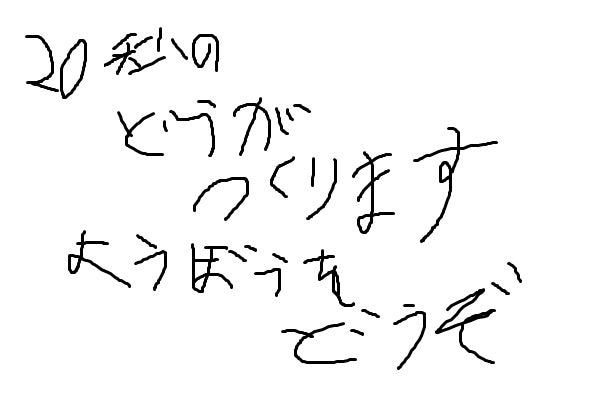 20秒の
どうが
つくります
ようぼうを
どうぞ